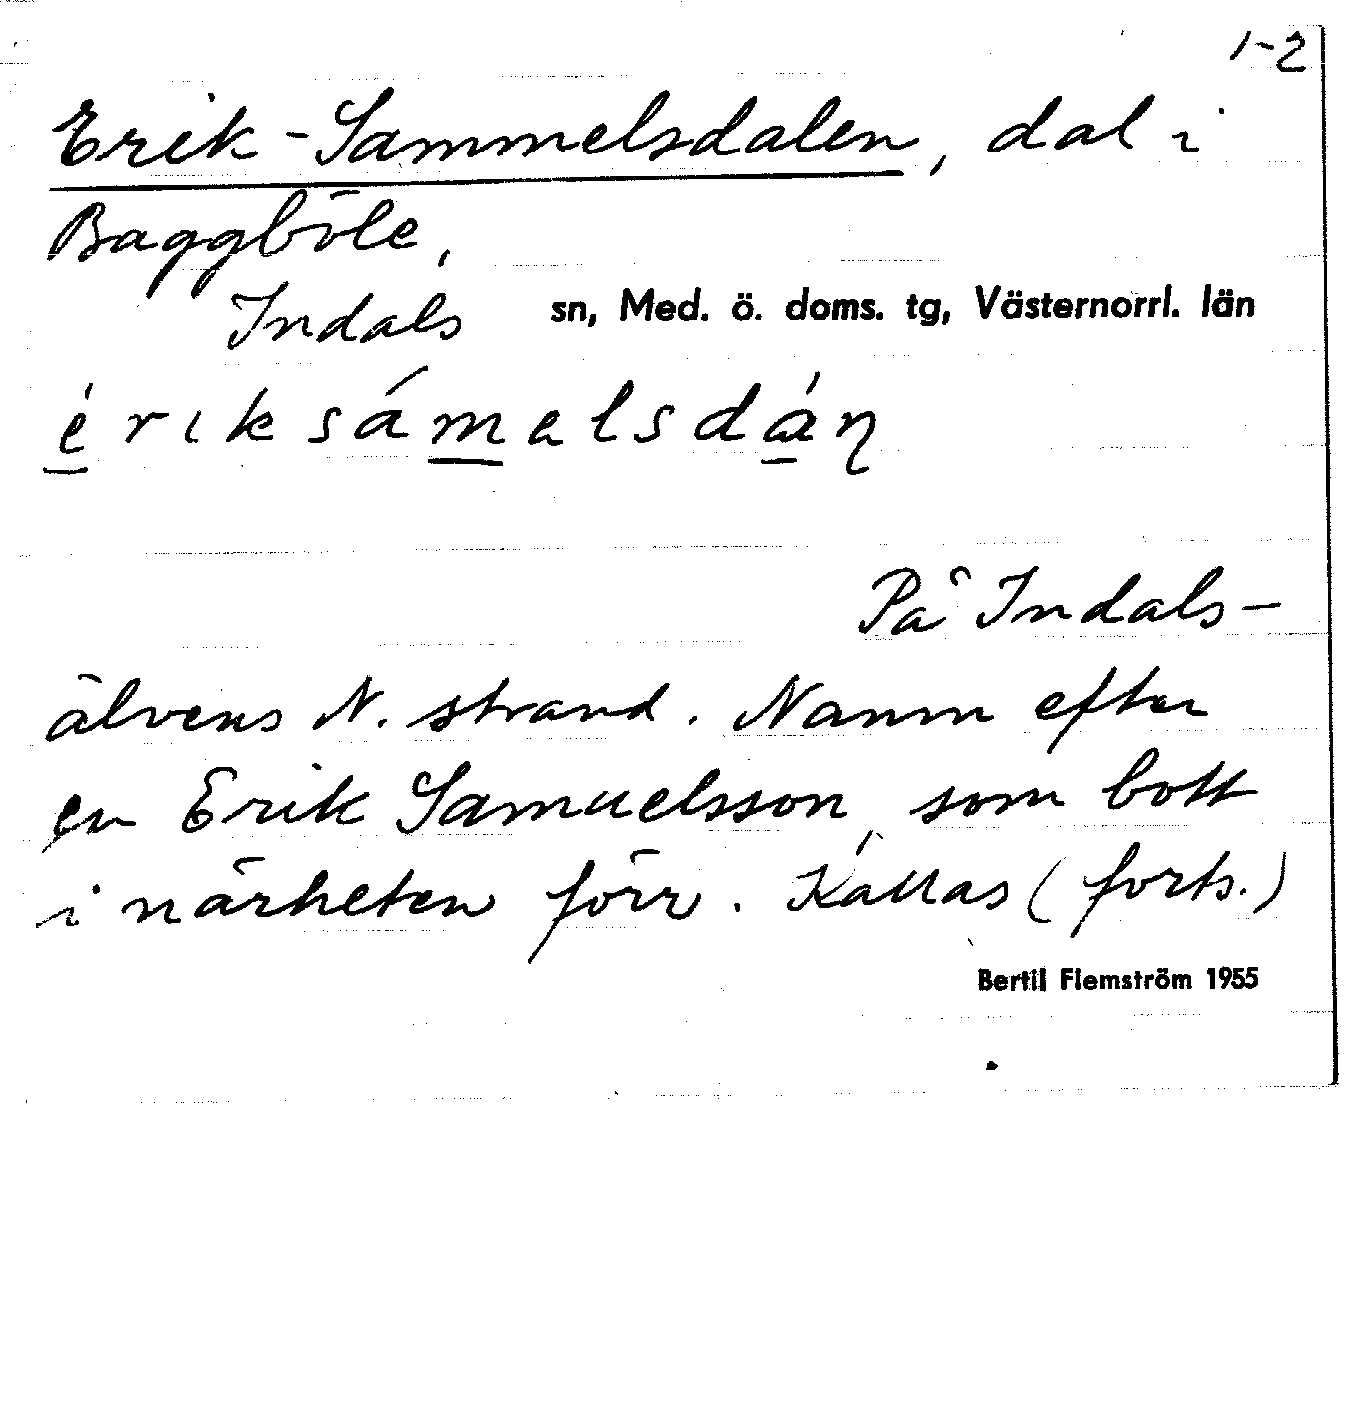 1-2
Erik-Sammelsdalen, dal i
Baggböle,
Indals sn, Med. ö. doms. tg, Västernorrl. län
é̲rıksám̲elsdá̲n
På Indals-
älvens N. strand. Namn efter
en Erik Samuelsson, som bott
i närheten förr. Kallas (forts.)
Bertil Flemström 1955